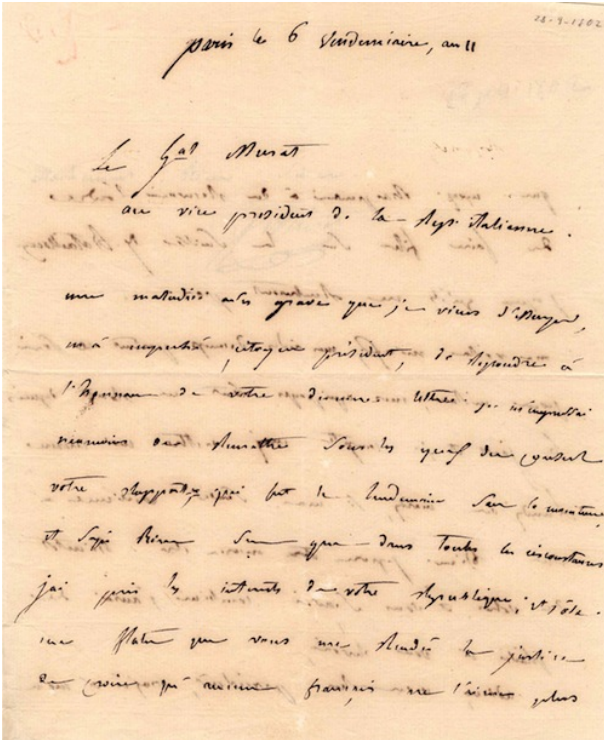 28-9-1802
paris le 6 Vendemiaire, an 11
Le Gal Murat
au vice president de la Rep. italienne.
une maladie assés grave que je viens d'essuyer,
m'a empeché, citoyen président, de repondre à
l'honneur de votre derniere lettre je m'empressai
neanmoins de remettre sous les yeux du consul
votre rapport, qui fut le lendemain sur le moniteur,
et soyés bien sur que dans toutes les circonstances
j'ai pris les interets de votre republique, et j'ose
me flater que vous me rendrés la justice
de croire qu'aucun français ne l'aime plus